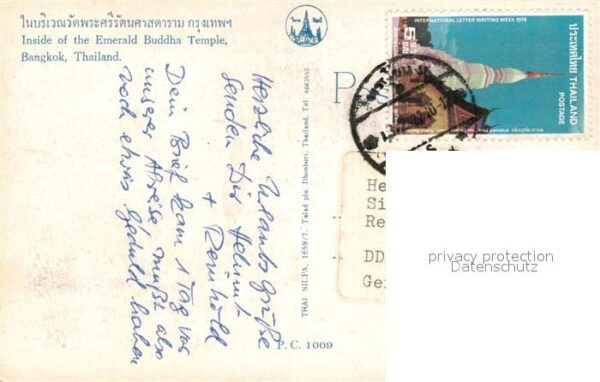 ในบริเวณวัดพระศรีรัตนศาสดาราม กรุงเทพฯ
Inside of the Emerald Buddha Temple,
Bangkok, Thailand.
Herzliche Urlaubsgrüße
senden Dir Helmut
+ Reinhold
Dein Brief kam 1 Tag vor
unserer Abreise mußt also
noch etwas Geduld haben
THAI SILPA, 1659/7, Talad plu, Dhonburi, Thailand, Tel. 4663652
P.C. 1009
P
INTERNATIONAL LETTER WRITING WEEK 1978
5 BAHT
ประเทศไทย THAILAND
POSTAGE
He
Si
Re
DD
Ger
privacy protection
Datenschutz